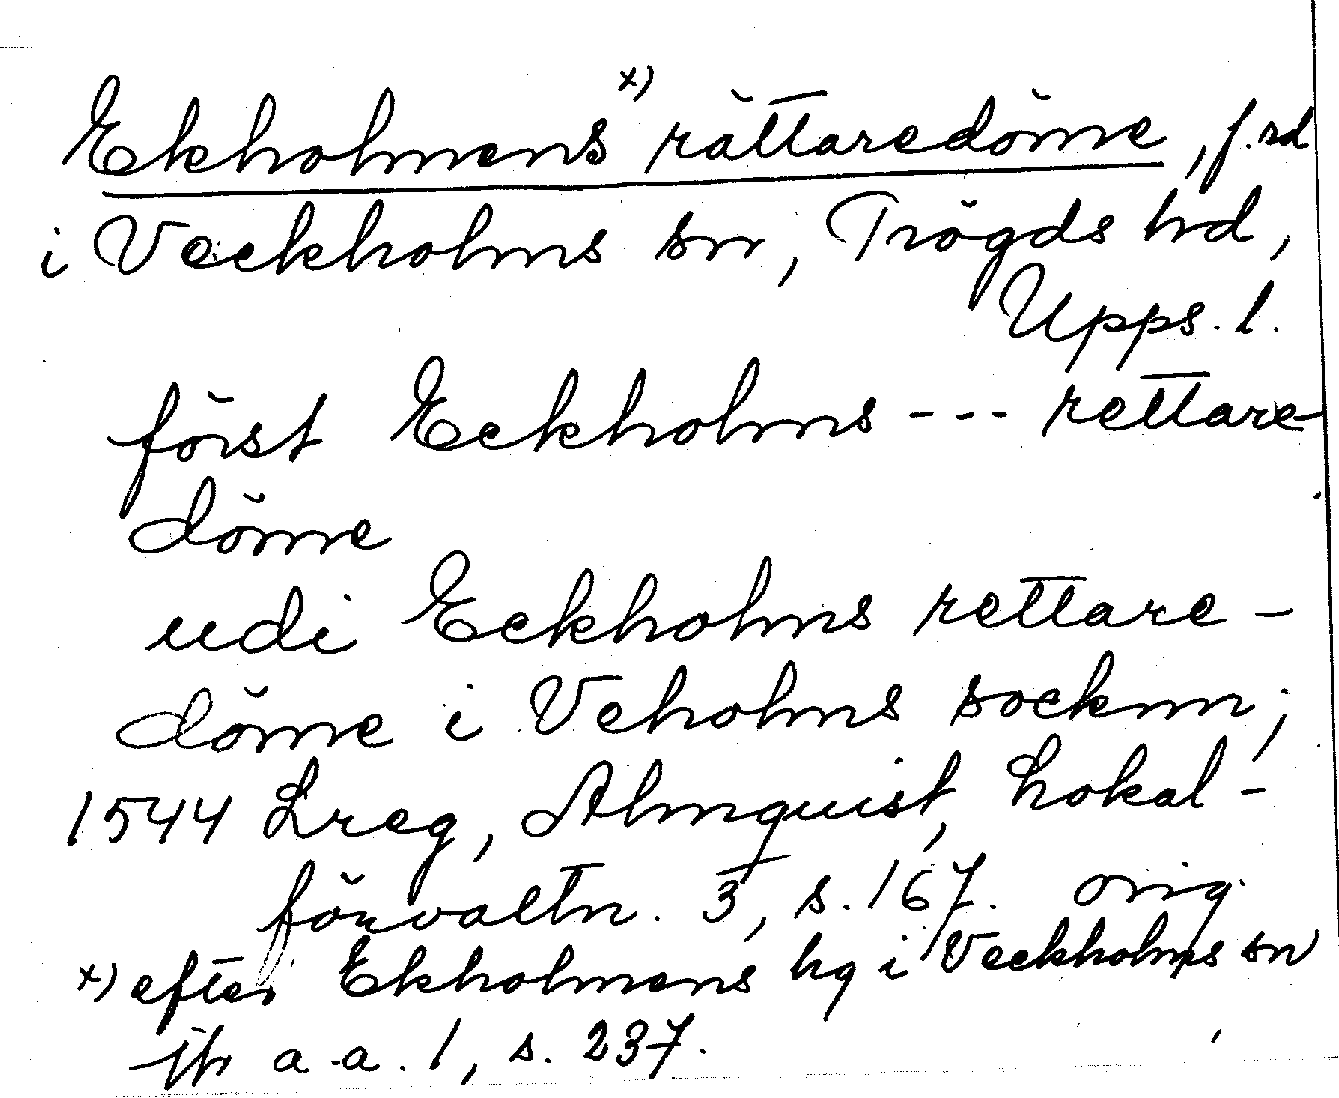 Ekholmens x) rättaredöme, f. rd
i Veckholms sn, Trögds hd,
Upps. l.
först Eckholms --- rettare-
döme
udi Eckholms rettare-
döme i Veholms socknn;
1544 Lreg, Almquist, Lokal-
förvaltn. 3, s. 167. orig
x) efter Ekholmens hg i Veckholms sn
jfr a.a. 1, s. 237.